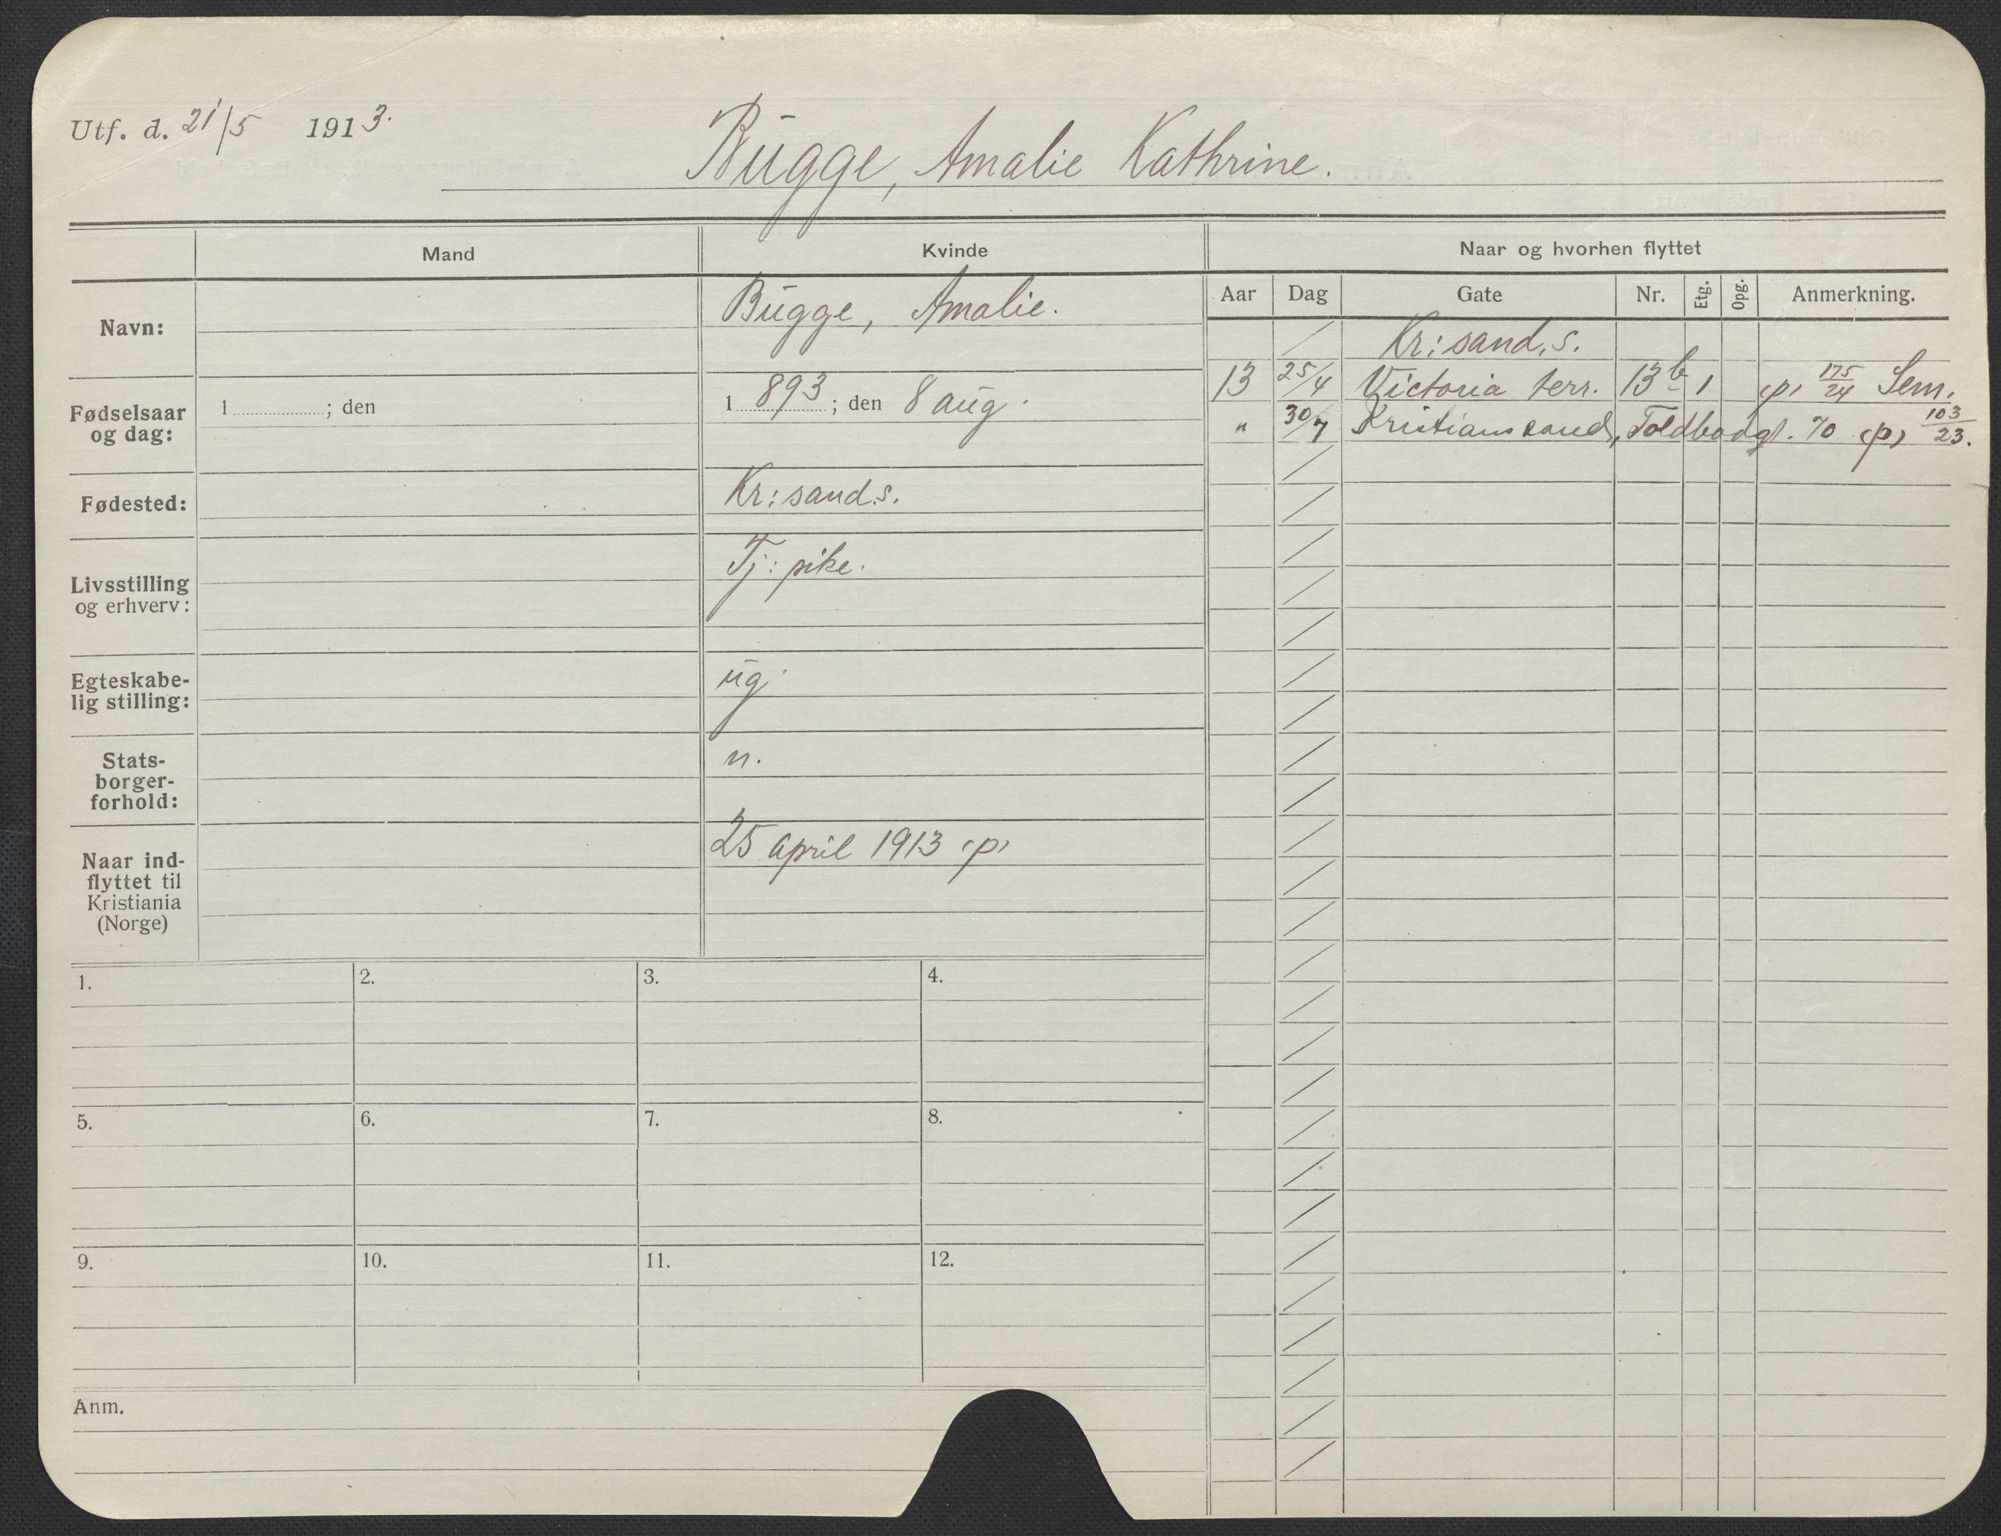 Utf. d. 21/5 1913.
Bugge, Amalie Kathrine.
Mand
Kvinde
Naar og hvorhen flyttet
Aar Dag Gate Nr. Etg. Opg. Anmerkning.
Navn:
Bugge, Amalie.
Fødselsaar
og dag:
1 ; den
1 893 ; den 8 aug.
Fødested:
Kr:sand.s.
Livsstilling
og erhverv:
Tj: pike.
Egteskabe-
lig stilling:
ug.
Stats-
borger-
forhold:
n.
Naar ind-
flyttet til
Kristiania
(Norge)
25 april 1913 (p)
/ Kr:sand.s.
13 25/4 Victoria terr. 13b 1 (p) 175/24 Sem.
" 30/7 Kristianssand, Toldbodgt. 70 (p) 103/23.
1. 2. 3. 4.
5. 6. 7. 8.
9. 10. 11. 12.
Anm.